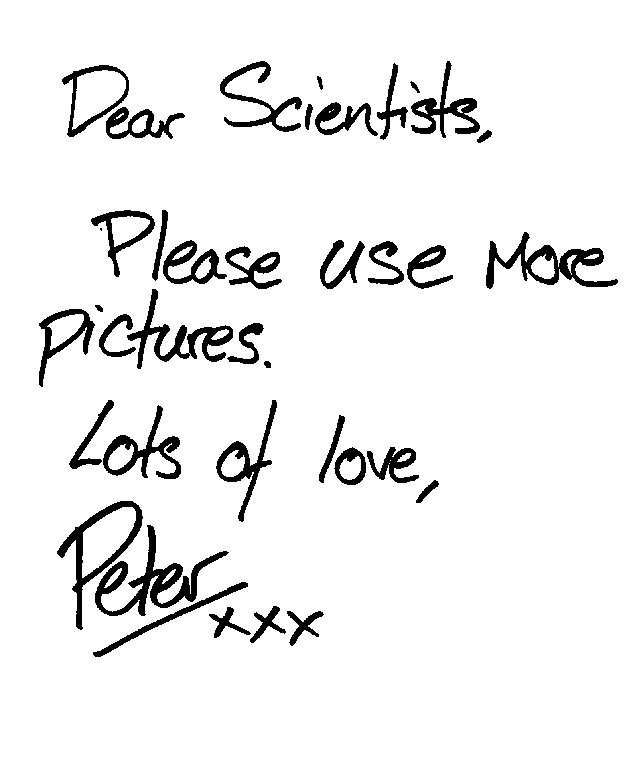 Dear Scientists,
Please use more
pictures.
Lots of love,
Peter
xxx